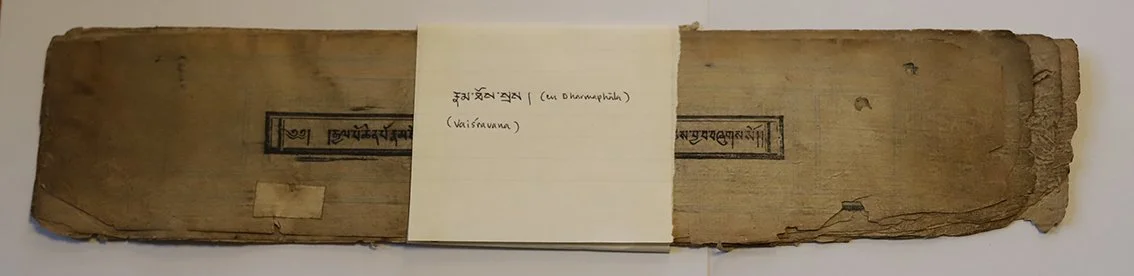 རྣམ་ཐོས་སྲས། (en Dharmaphāla)
(Vaiśravana)
༄༅། །རྒྱལ་པོ་ཆེན་པོ་རྣམ་
ཅེས་བྱ་བ་བཞུགས་སོ།།